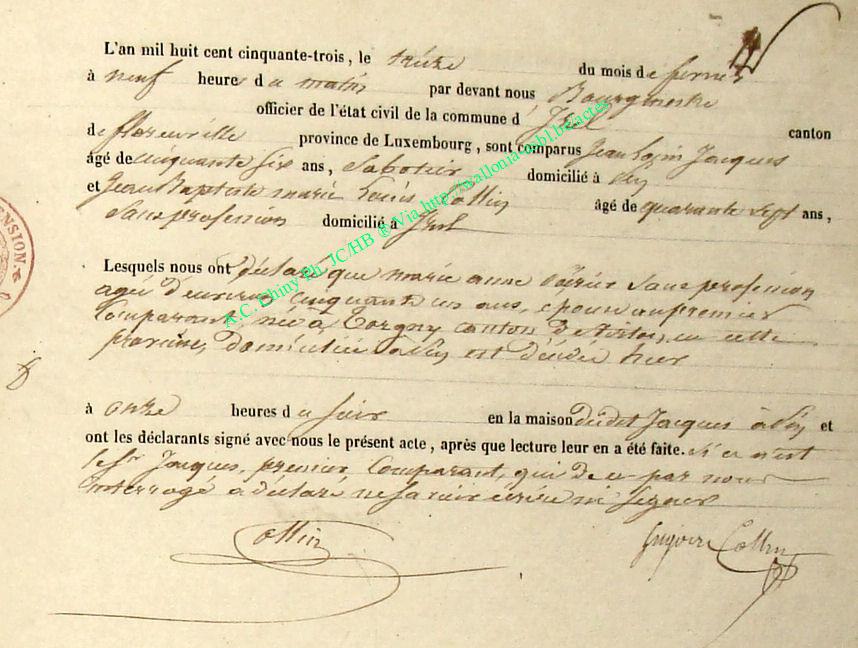 L'an mil huit cent cinquante-trois, le treize du mois de fevrier
à neuf heures du matin par devant nous Bourgmestre
officier de l'état civil de la commune d'Izel canton
de florenville province de Luxembourg, sont comparus Jean Jacques
âgé de cinquante six ans, Sabotier domicilié à
et Jean Baptiste marie Louis Collin âgé de quarante sept ans,
Sans profession domicilié à Izel
Lesquels nous ont déclaré que marie anne Sans profession
agée d'environ cinquante un ans, epouse au premier
Comparant, née à Torgny canton de en cette
province, domiciliée est décédée hier
à onze heures du soir en la maison dudit Jacques et
ont les déclarants signé avec nous le présent acte, après que lecture leur en a été faite. Si ce n'est
le Sr Jacques, premier Comparant, qui de ce par nous
interrogé a déclaré ne savoir écrire ni signer
Collin Collin
A.C. Chiny Ph JC/HB ® Via http://wallonia-asbl.be/actes
ENSION